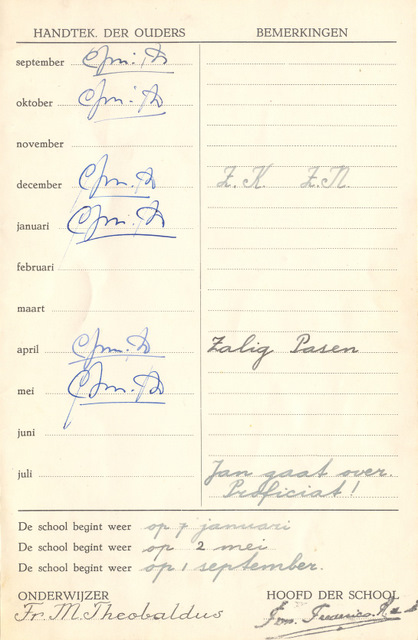 HANDTEK. DER OUDERS BEMERKINGEN
september
oktober
november
december Z.K. Z.N.
januari
februari
maart
april Zalig Pasen
mei
juni
juli Jan gaat over.
Proficiat!
De school begint weer op 7 januari
De school begint weer op 2 mei
De school begint weer op 1 september.
ONDERWIJZER HOOFD DER SCHOOL
Fr. M. Theobaldus